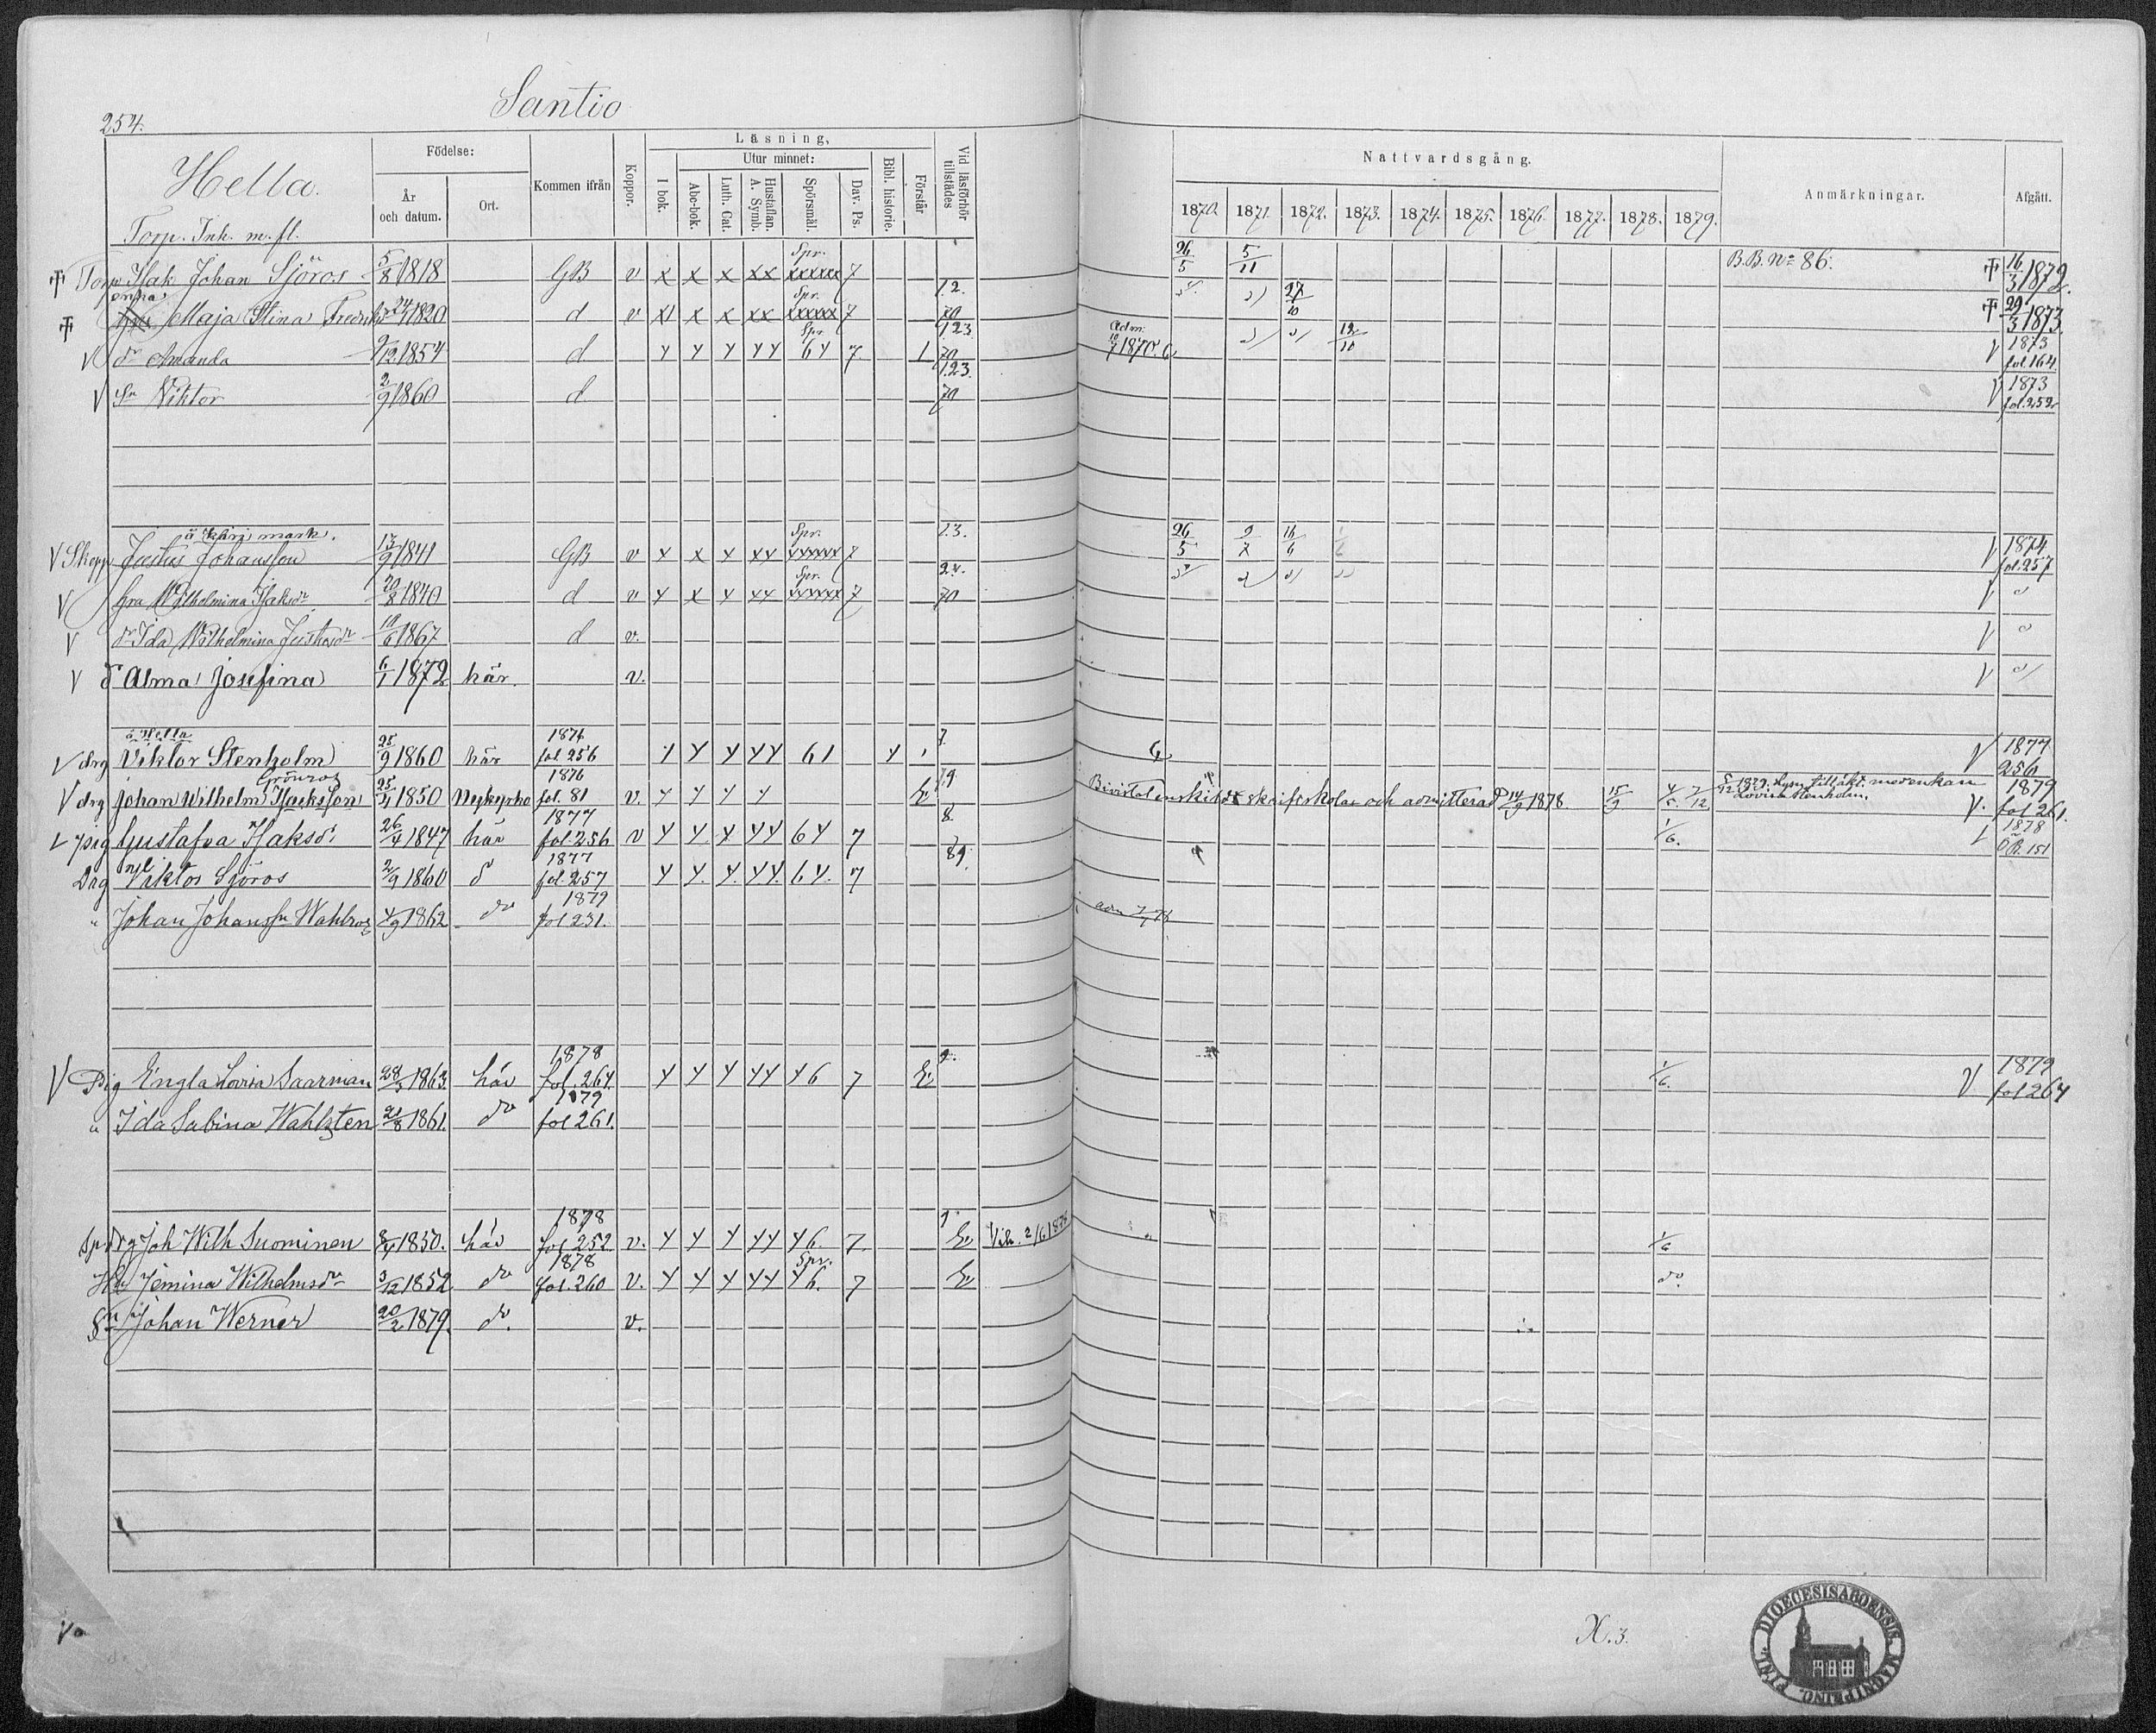 Santio
254.
Hella.
Torp. Inh. m. fl.
Födelse:
År och datum.
Ort.
Kommen ifrån
Koppor.
Läsning,
I bok.
Utur minnet:
Abc-bok.
Luth. Cat.
Hustaflan. A. Symb.
Spörsmål.
Dav. Ps.
Bibl. historie.
Förstår
Vid läsförhör tillstädes
Nattvardsgång.
1870. 1871. 1872. 1873. 1874. 1875. 1876. 1877. 1878. 1879.
Anmärkningar.
Afgått.
Torp Isak Johan Sjöros 5/8 1818 GB v x x x xx Spr. xxxxxx 7 26/5 5/11 B.B. No 86. 16/3 1872.
enka Maja Stina 1820 d v x x xx Spr. xxxxxx 7 12. 70 27/10 29/3 1873
dr Amanda 9/12 1854 d y y y yy Spr 64 7 1 123 70 Adm. 1870. 12/10 V 1873 fol. 164
V Sn Viktor 2/9 1860 d 123. 70 V 1873 fol. 252
V Skepp Justus Johansson 13/9 1841 GB v y x y xy Spr. 7 13. 26/5 9/7 16/6 V 1874 fol. 257
V hra Wilhelmina Isaksdr 20/8 1840 d v y x y xy Spr. 7 24. 70 V
V dr Ida Wilhelmina Justusdr 10/6 1867 d v. V
V dr Alma Josefina 6/1 1872 här. v. V
å Hella
V drg Viktor Stenholm 25/9 1860 här 1876 fol 256 y y y yy 61 y 7. V 1877 256
Grönroos
V drg Johan Wilhelm Isaksson 25/4 1850 Nykyrko 1876 fol. 81 v. y y y y 79 skriftskolan och admitterad 14/9 1878. 15/9 7/12 1879. Lysn. tillåkt. med enkan Lovisa Stenholm. V. 1879 fol 261.
pig Gustafva Isaksdr 26/4 1847 här 1877 fol. 256 v y y x yy 64 7 8. 1/6. 1878 151
Drg Viktor Sjöros 2/9 1860 d 1877 fol. 257 y y. y. yy. 64. 7 89.
" Johan Johanss Wahlroos 4/9 1862 do 1879 fol 231.
V Pig Engla Lovisa Saarman 28/5 1863. här 1878 fol. 264. y y y yy 46 7 9. 1/6. V 1879 fol 264
" Ida Sabina Wahlsten 21/8 1861. do 1879 fol 261.
Joh Wilh Suominen 8/4 1850. här 1878 fol. 252. v. y y y yy 46. 7. 9. Vik. 2/6 1878 1/6
Hu Jemina Wilhelmsdr 3/12 1852 do 1878 fol. 260 v. y y y yy Spr. 46. 7 do.
Sn Johan Werner 20/2 1879. do. v.
X. 3.
DIOECESIS ABOENSIS